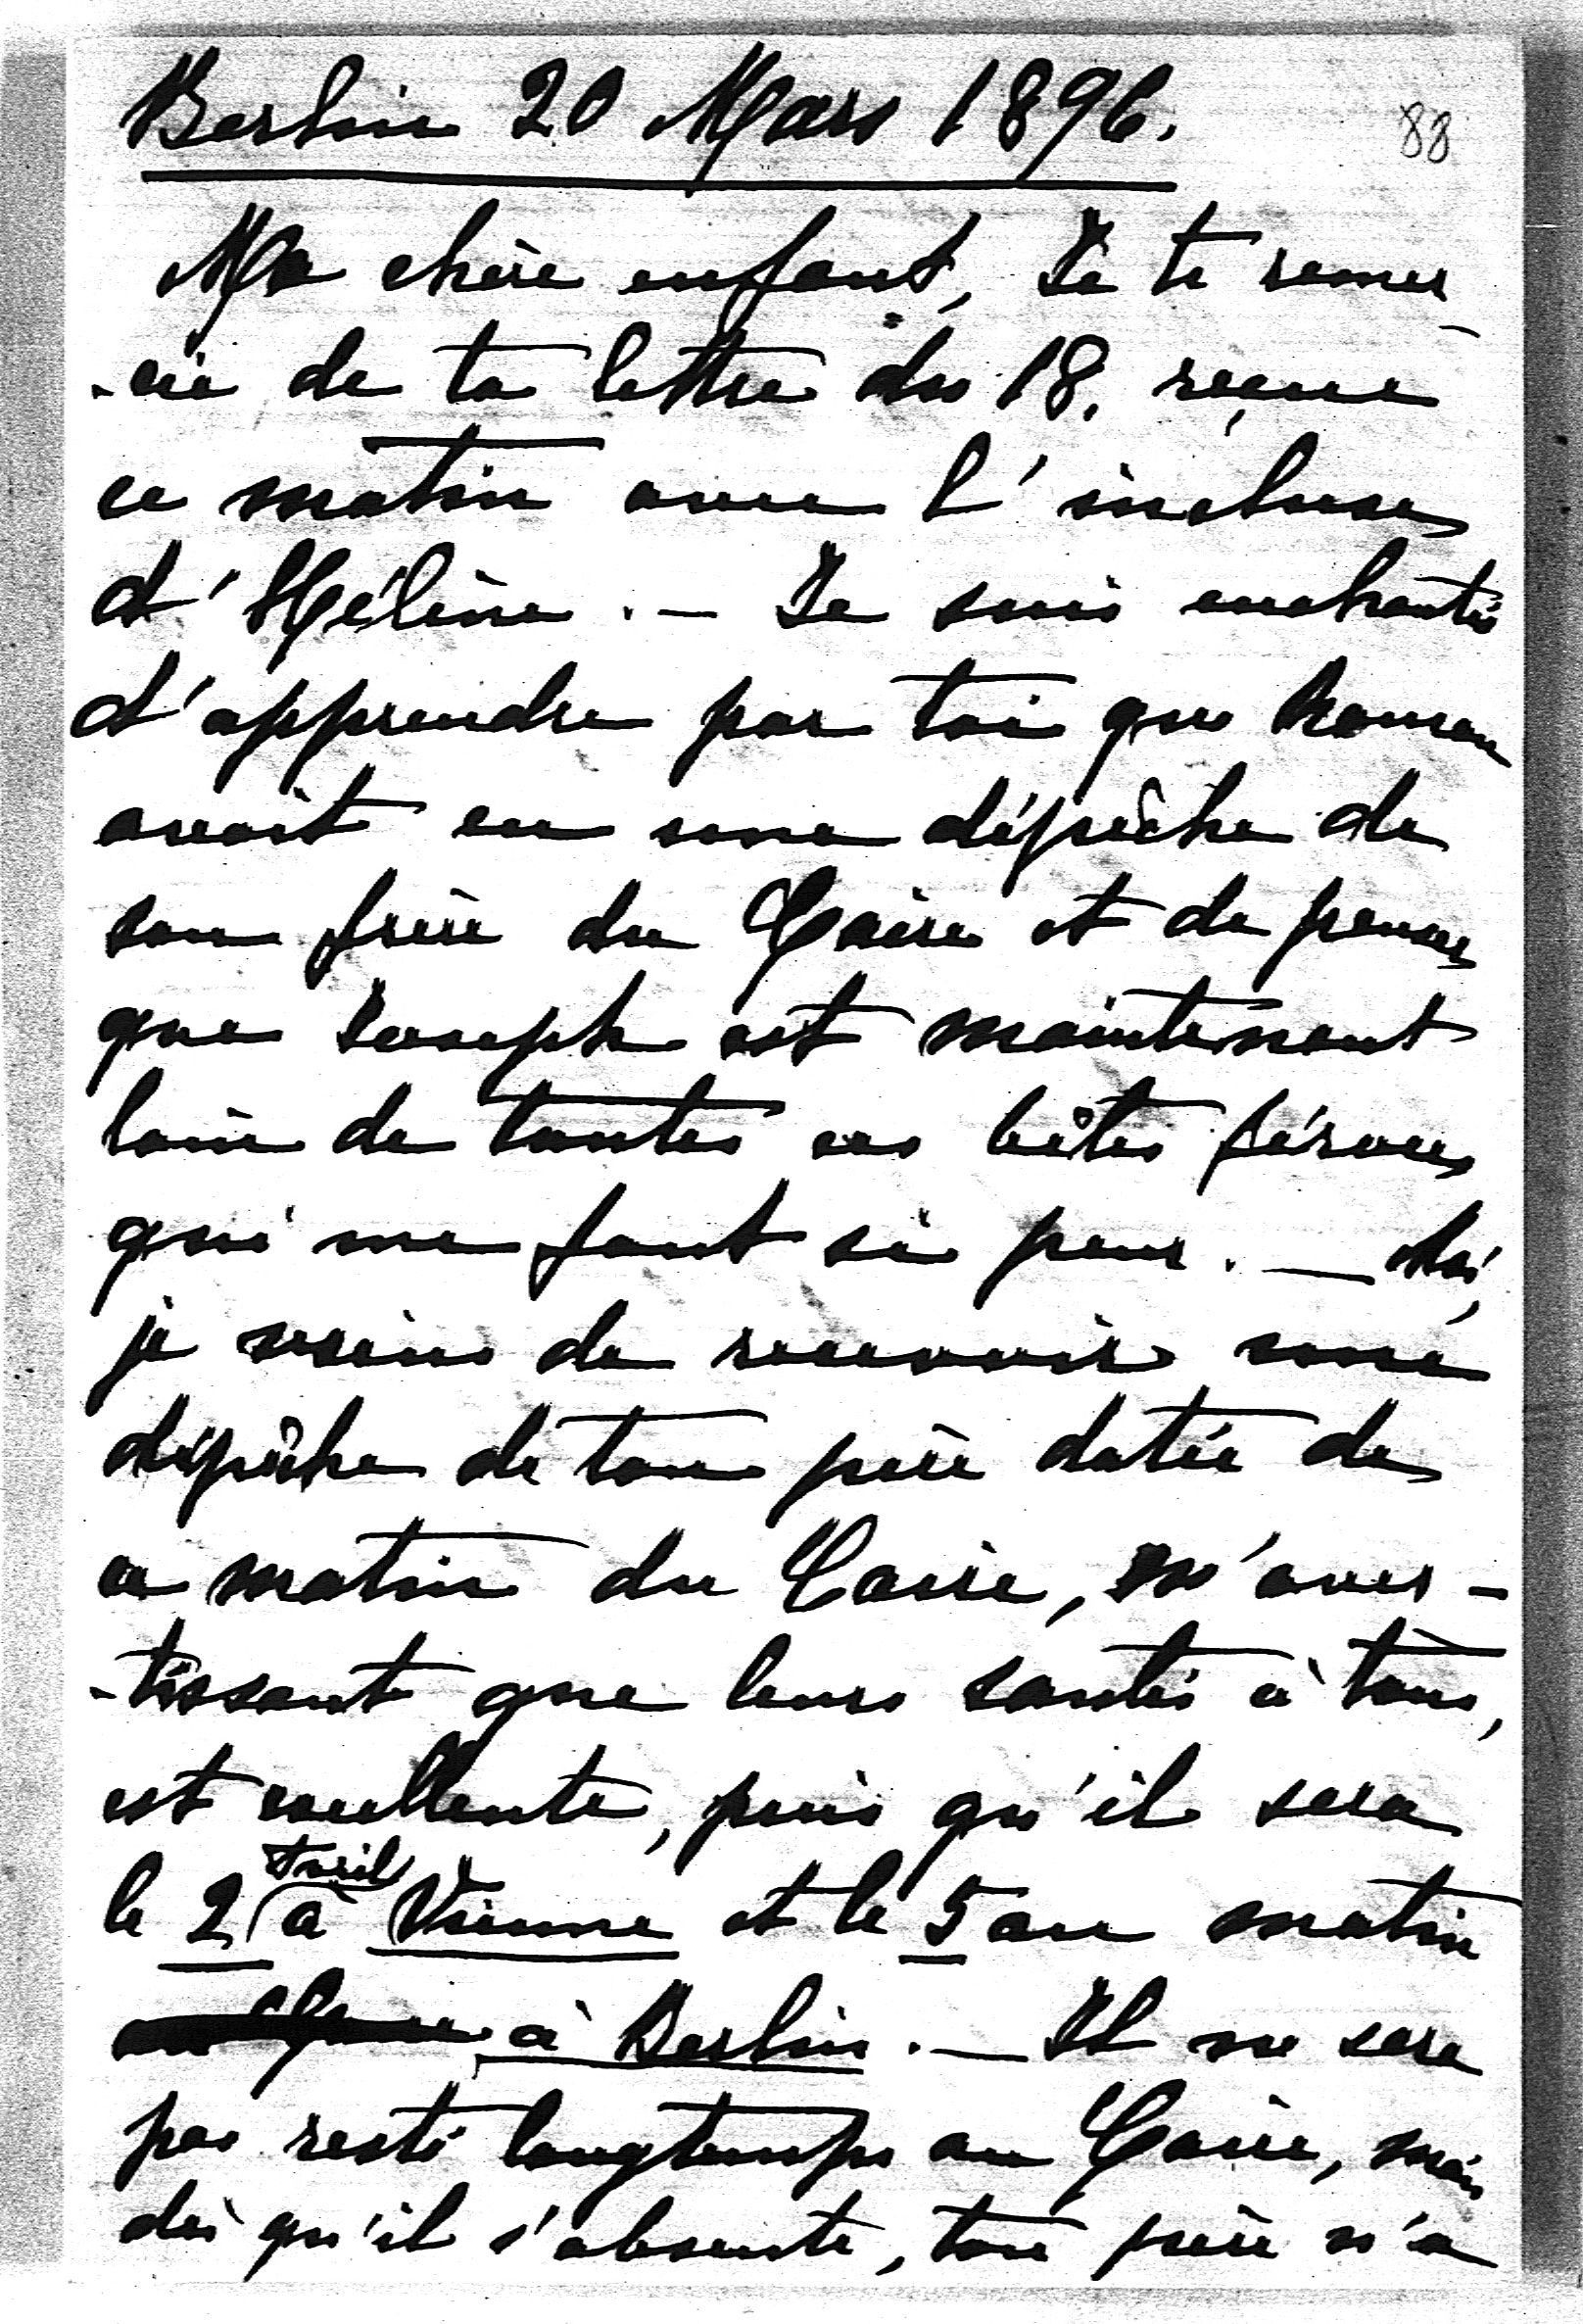 Berlin 20 Mars 1896.
88
Ma chère enfant, Je te remer-
-cie de ta lettre du 18. reçue
ce matin avec l'incluse
d'Hélène. — Je suis enchantée
d'apprendre par toi que Roman
avait eu une dépêche de
son frère du Caire et de penser
que Joseph est maintenant
loin de toutes ces bêtes féroces
qui me font si peur. —
je viens de recevoir une
dépêche de ton père datée de
ce matin du Caire, m'aver-
-tissant que leurs santés à tous,
est excellente, puis qu'il sera
le 2 Avril à Vienne et le 5 au matin
à Berlin. — Il ne sera
pas resté longtemps au Caire, mais
dès qu'il s'absente, ton père n'a